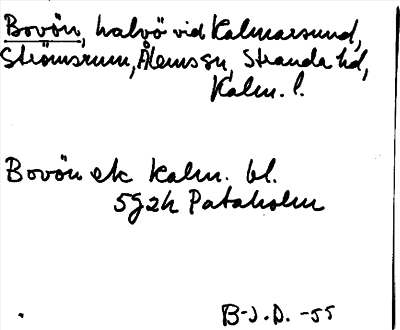 Bovön, halvö vid Kalmarsund,
Strömsrum, Ålems sn, Stranda hd,
Kalm. l.
Bovön ek Kalm. bl.
5g2h Pataholm
B-J.D. -55